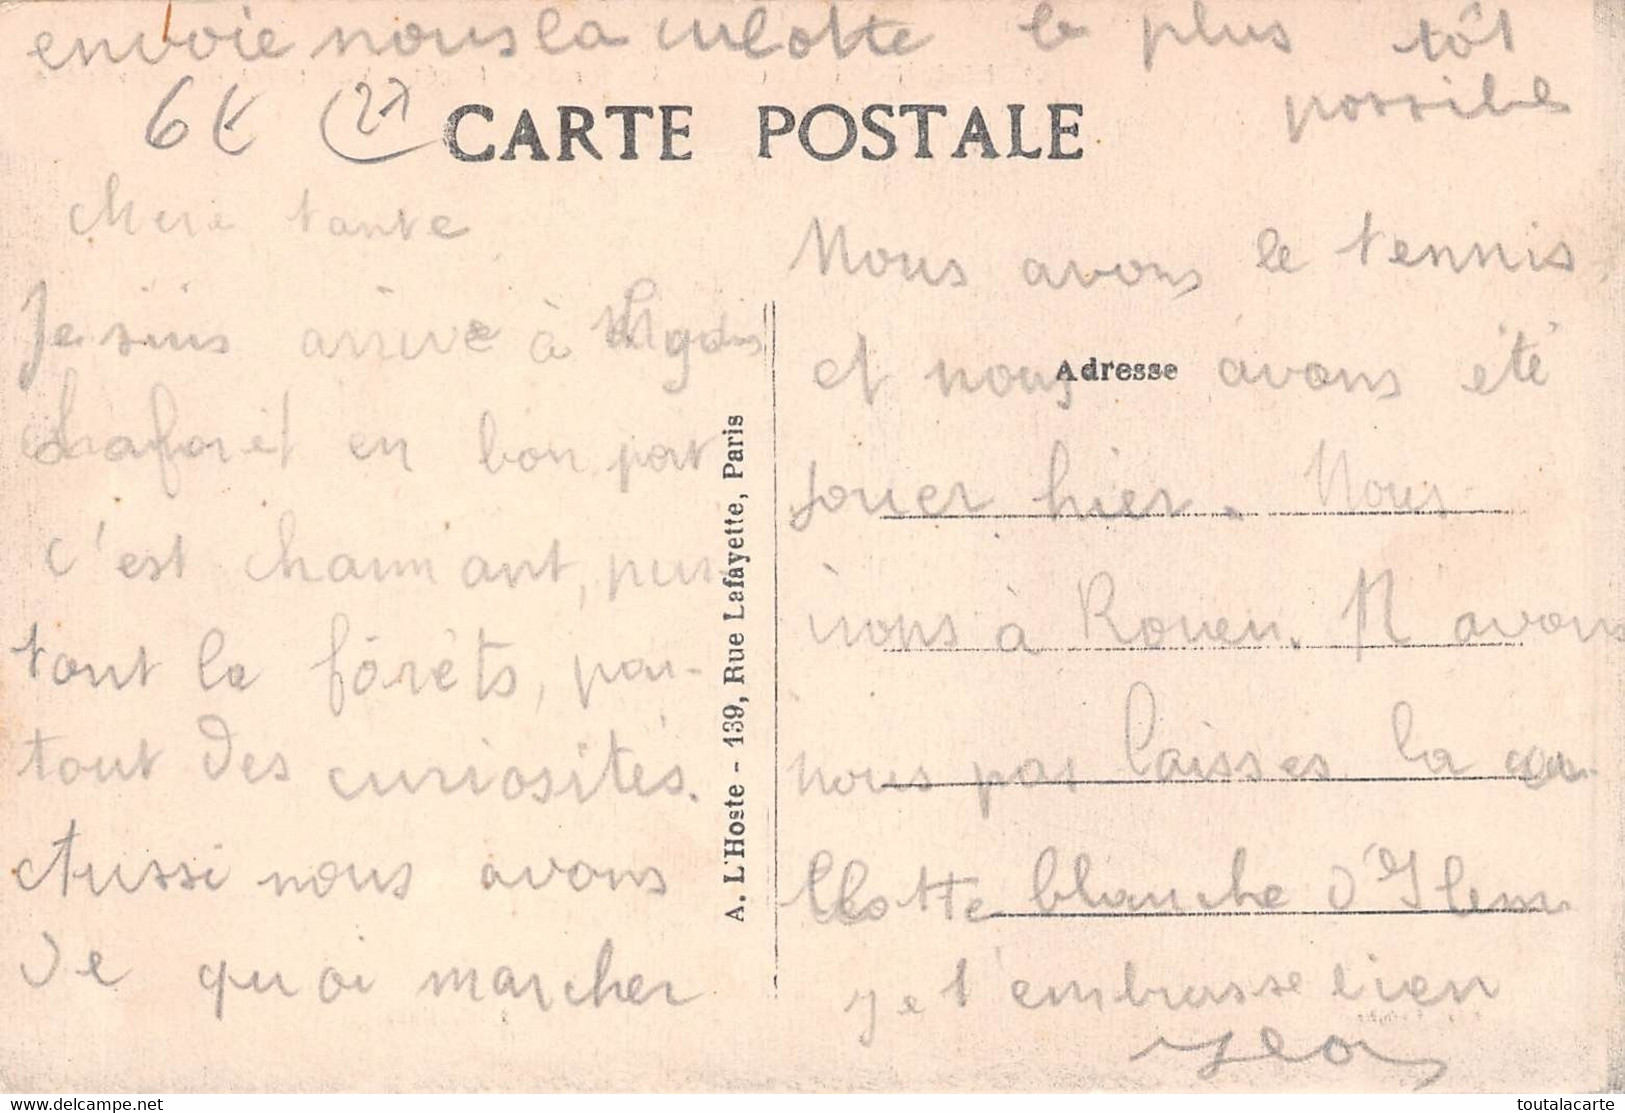 envoie nous la culotte le plus tôt
possible
6€ (27)
CARTE POSTALE
chere tante
Je suis arrive à Lyons
Laforêt en bon port
c'est charmant, pur
tout la fôrèts, par-
tout des curiosités.
Aussi nous avons
de quoi marcher
A. L'Hoste - 139, Rue Lafayette, Paris
Nous avons le tennis,
Adresse
et nous avons été
jouer hier. Nous
irons à Rouen. N avons
nous pas laisses la cu-
lotte blanche d'
je t'embrasse bien